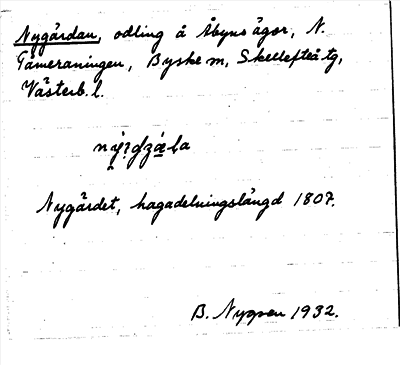 Nygärdan, odling å Åbyns ägor, N.
Tåmeraningen, Byske sn, Skellefteå tg,
Västerb. l.
Nygärdet, hagadelningslängd 1807.
B. Nygren 1932.